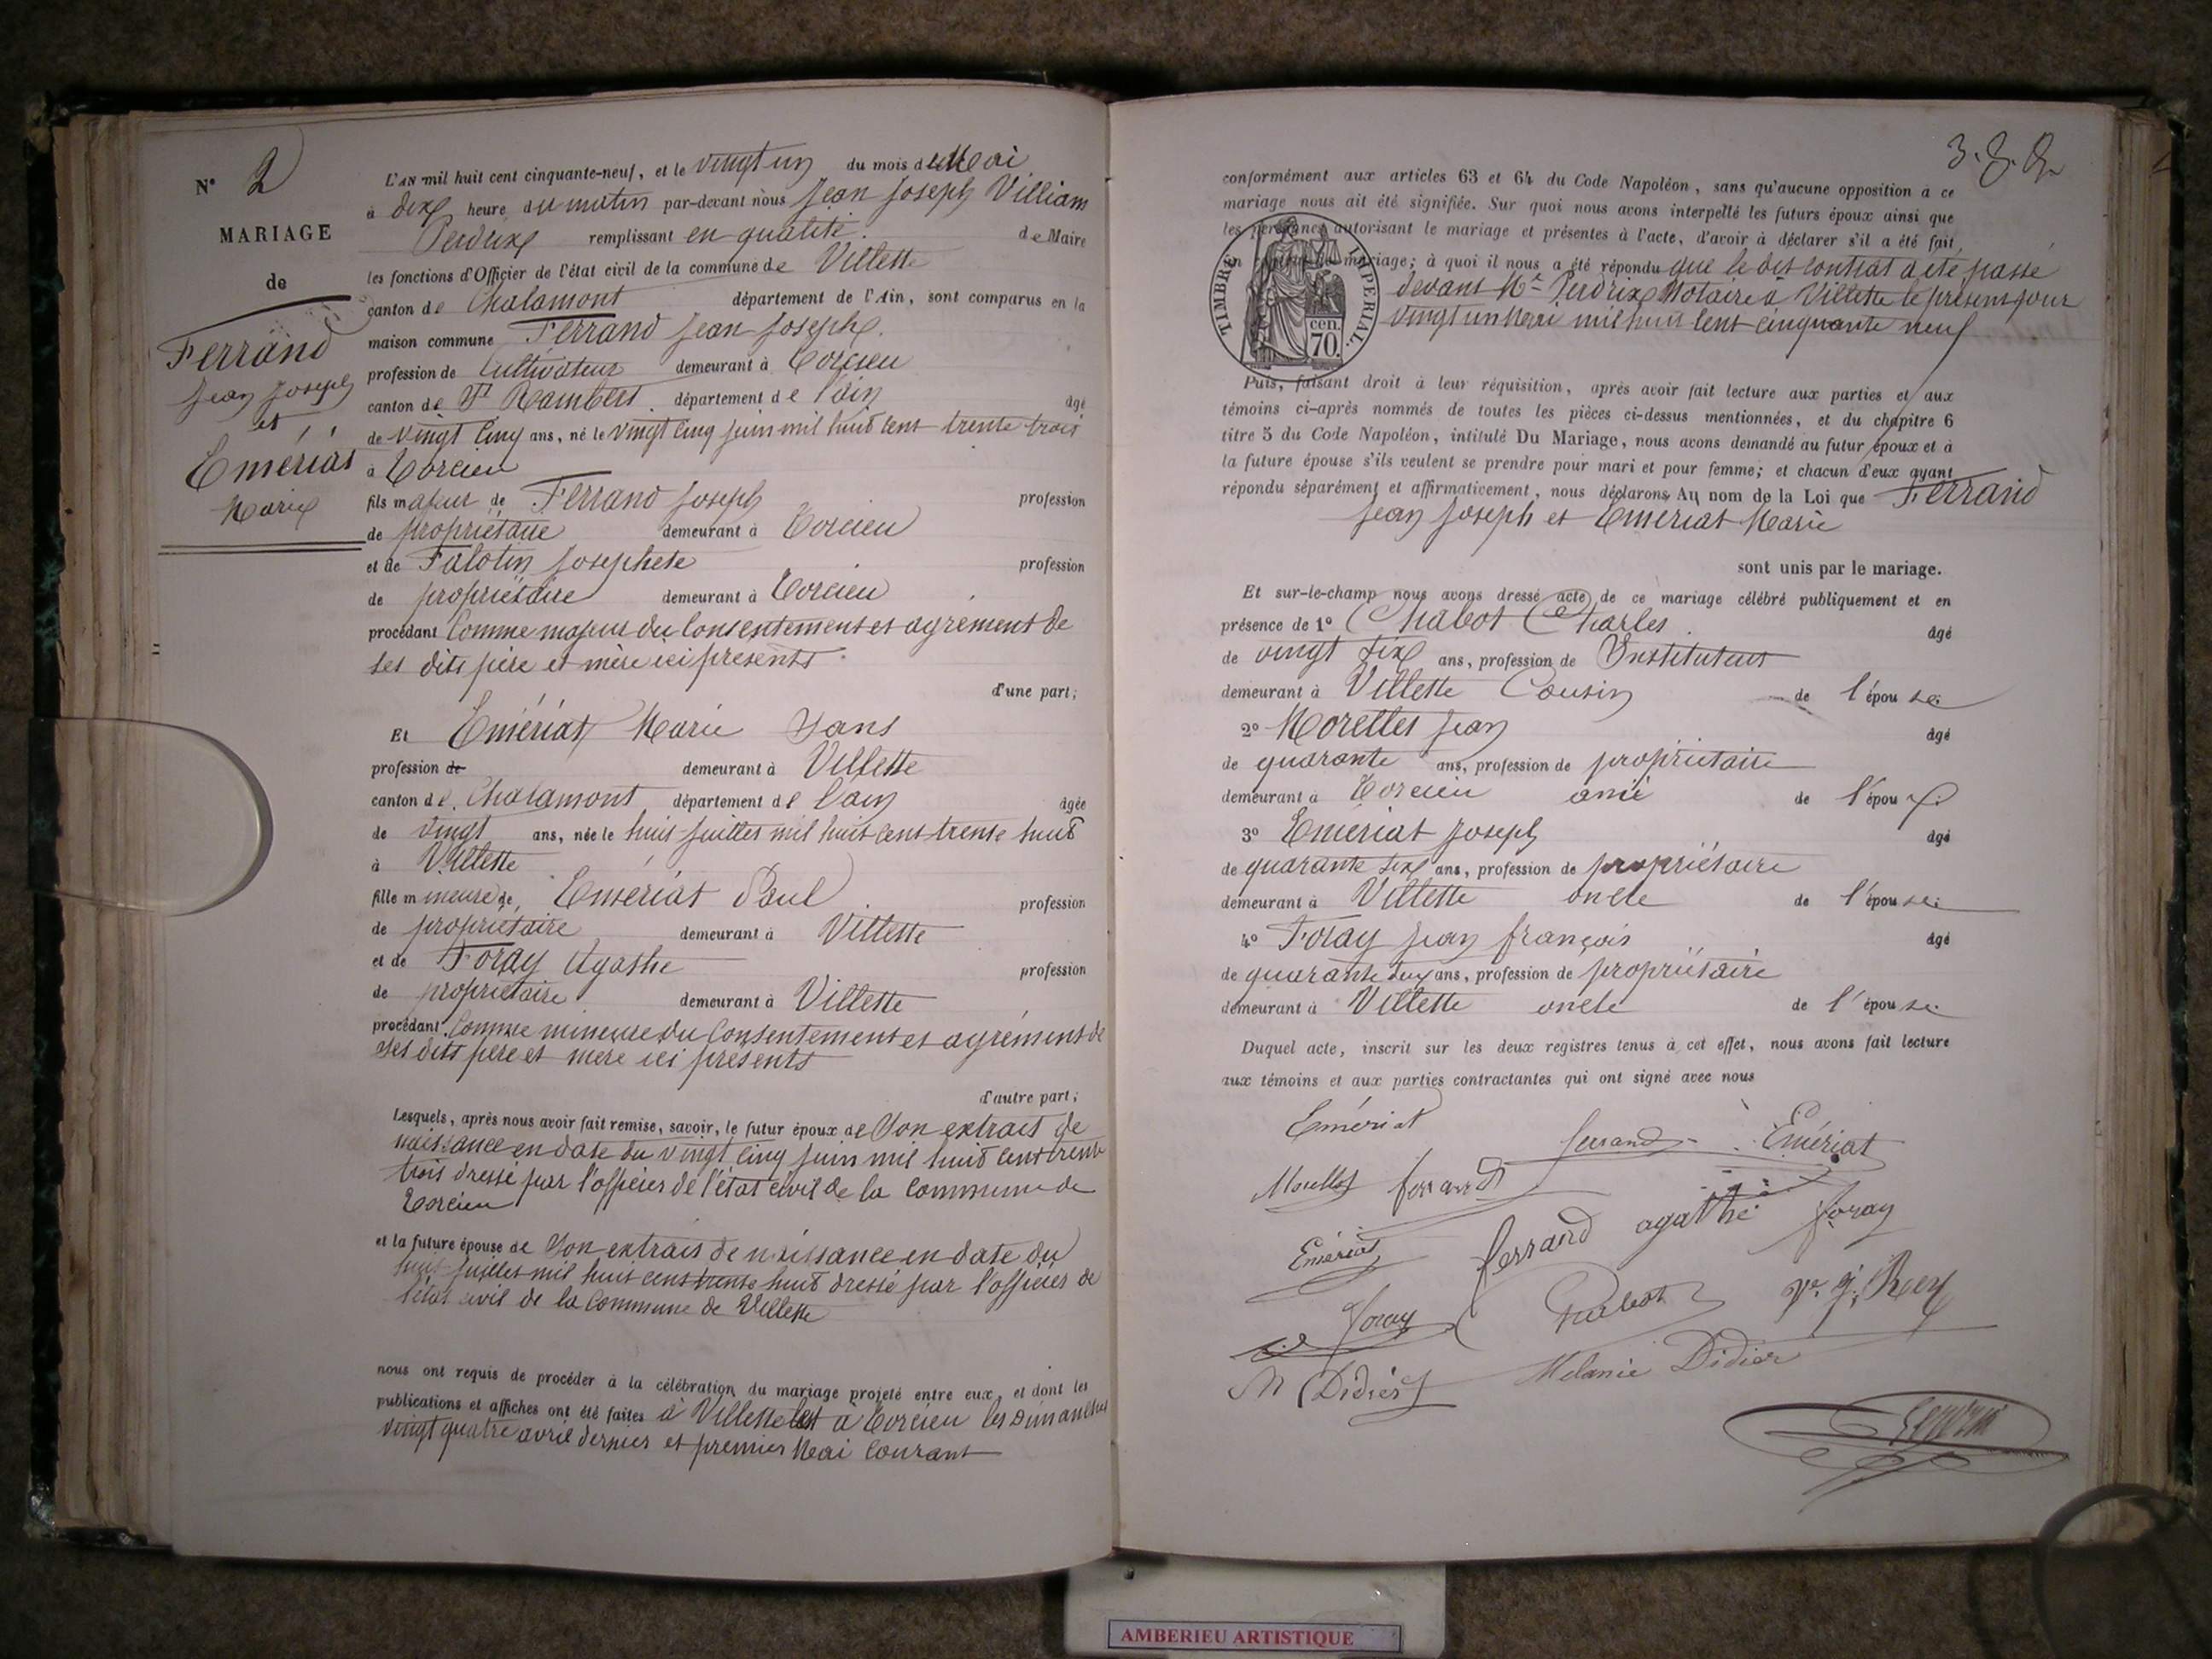 N° 2
MARIAGE
de
Ferrand
Jean Joseph
et
Emériat
Marie
L'AN mil huit cent cinquante-neuf, et le vingt un du mois de Mai
à dix heure du matin par-devant nous Jean Joseph Villiam
Perdrix remplissant en qualité de Maire
les fonctions d'Officier de l'état civil de la commune de Villette
canton de Chalamont département de l'Ain, sont comparus en la
maison commune Ferrand Jean Joseph.
profession de Cultivateur demeurant à Torcieu
canton de St Rambert département de l'ain âgé
de vingt cinq ans, né le vingt cinq juin mil huit cent trente trois
à Torcieu
fils majeur de Ferrand Joseph profession
de propriétaire demeurant à Torcieu
et de Falotin Josephete profession
de propriétaire demeurant à Torcieu
procédant Comme majeur du Consentement et agrément de
ses dits père et mère ici présents
d'une part;
Et Emériat Marie Sans
profession de demeurant à Villette
canton de Chalamont département de l'ain âgée
de vingt ans, née le huit juillet mil huit cent trente huit
à Villette
fille mineure de Emériat Paul profession
de propriétaire demeurant à Villette
et de Foray Agathe profession
de propriétaire demeurant à Villette
procédant Comme mineure du Consentement et agrément de
ses dits père et mère ici présents
d'autre part;
Lesquels, après nous avoir fait remise, savoir, le futur époux de Son extrait de
naissance en date du vingt cinq juin mil huit cent trente
trois dressé par l'officier de l'état civil de la Commune de
Torcieu
et la future épouse de Son extrait de naissance en date du
huit juillet mil huit cent trente huit dressé par l'officier de
l'état civil de la Commune de Villette
nous ont requis de procéder à la célébration du mariage projeté entre eux, et dont les
publications et affiches ont été faites à Villette et à Torcieu les Dimanches
vingt quatre avril dernier et premier Mai Courant
conformément aux articles 63 et 64 du Code Napoléon, sans qu'aucune opposition à ce
mariage nous ait été signifiée. Sur quoi nous avons interpellé les futurs époux ainsi que
les personnes autorisant le mariage et présentes à l'acte, d'avoir à déclarer s'il a été fait
un contrat de mariage; à quoi il nous a été répondu que le dit Contrat a été passé
devant Me Perdrix Notaire à Villette le présent jour
vingt un Mai mil huit cent cinquante neuf
TIMBRE IMPERIAL.
cen.
70.
Puis, faisant droit à leur réquisition, après avoir fait lecture aux parties et aux
témoins ci-après nommés de toutes les pièces ci-dessus mentionnées, et du chapitre 6
titre 5 du Code Napoléon, intitulé Du Mariage, nous avons demandé au futur époux et à
la future épouse s'ils veulent se prendre pour mari et pour femme; et chacun d'eux ayant
répondu séparément et affirmativement, nous déclarons Au nom de la Loi que Ferrand
Jean Joseph et Emériat Marie
sont unis par le mariage.
Et sur-le-champ nous avons dressé acte de ce mariage célébré publiquement et en
présence de 1° Chabot Charles âgé
de vingt six ans, profession de Instituteur
demeurant à Villette Cousin de l'épouse
2° Morellet Jean âgé
de quarante ans, profession de propriétaire
demeurant à Torcieu ami de l'époux
3° Emériat Joseph âgé
de quarante six ans, profession de propriétaire
demeurant à Villette oncle de l'épouse
4° Foray Jean françois âgé
de quarante deux ans, profession de propriétaire
demeurant à Villette oncle de l'épouse
Duquel acte, inscrit sur les deux registres tenus à cet effet, nous avons fait lecture
aux témoins et aux parties contractantes qui ont signé avec nous
Emériat
ferrand Emériat
Morellet ferrand
Emériat ferrand agathe foray
foray Chabot Rey
Didier Melanie Didier
AMBERIEU ARTISTIQUE